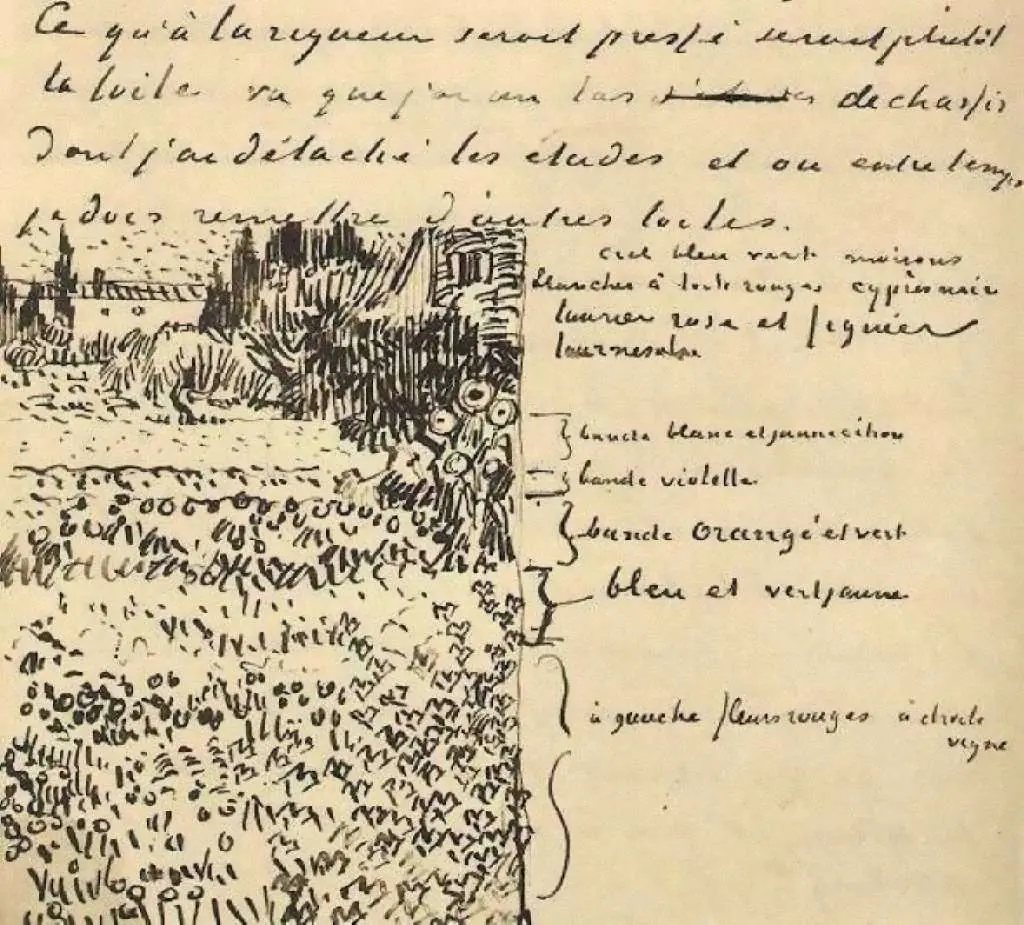 Ce qu'à la rigueur serait pressé serait plutôt
la toile vu que j'ai un tas de chassis
Dont j'ai détaché les études et ou entre temps
je dois remettre d'autres toiles.
ciel bleu vert maisons
blanches à toits rouges cyprès noir
laurier rose et figuier
tournesols
bande blanc et jaune citron
bande violette
bande orangé et vert
bleu et vert jaune
à gauche fleurs rouges à droite
vigne